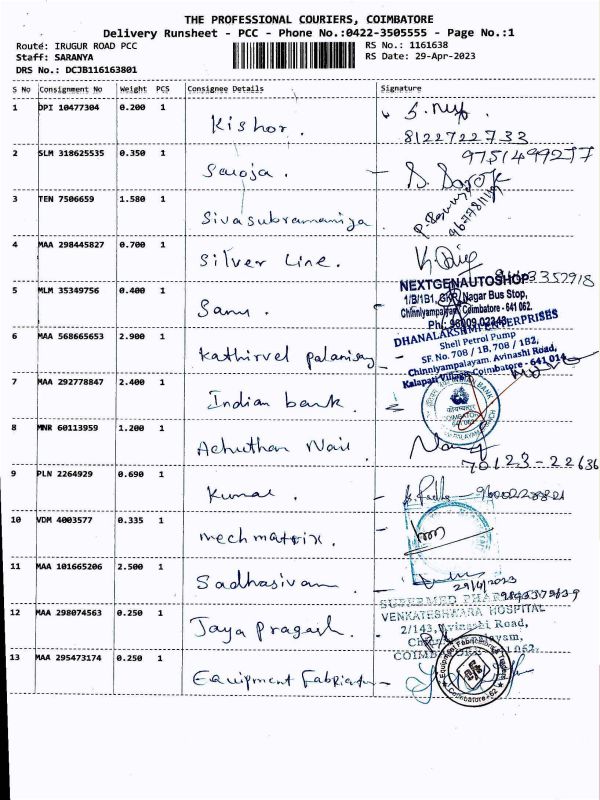 THE PROFESSIONAL COURIERS, COIMBATORE
Delivery Runsheet - PCC - Phone No.:0422-3505555 - Page No.:1
Route: IRUGUR ROAD PCC
RS No.: 1161638
Staff: SARANYA
RS Date: 29-Apr-2023
DRS No.: DCJB116163801
S No Consignment No Weight PCS Consignee Details Signature
1 DPI 10477304 0.200 1 Kishor.
8122722733
2 SLM 318625535 0.350 1 Saroja.
9751499277
3 TEN 7506659 1.580 1 Sivasubramaniya
4 MAA 298445827 0.700 1 Silver Line.
5 MLM 35349756 0.400 1
NEXTGENAUTOSHOP
1/B/1B1, GKR Nagar Bus Stop,
Chinniyampalayam, Coimbatore - 641 062.
6 MAA 568665653 2.900 1 Kathirvel palanisay
DHANALAKSHMI ENTERPRISES
Shell Petrol Pump
SF. No. 708 / 1B, 708 / 1B2,
Chinniyampalayam, Avinashi Road,
Kalapati Village, Coimbatore - 641 014
7 MAA 292778847 2.400 1 Indian bank.
8 MNR 60113959 1.200 1 Achuthan Nair
70123-22636
9 PLN 2264929 0.690 1 Kumal.
10 VDM 4003577 0.335 1 mechmatrix.
11 MAA 101665206 2.500 1 Sadhasivam
29/4/2023
12 MAA 298074563 0.250 1 Jaya Pragash.
VENKATESHWARA HOSPITAL
2/143, Avinashi Road,
13 MAA 295473174 0.250 1 Equipment Fabricator